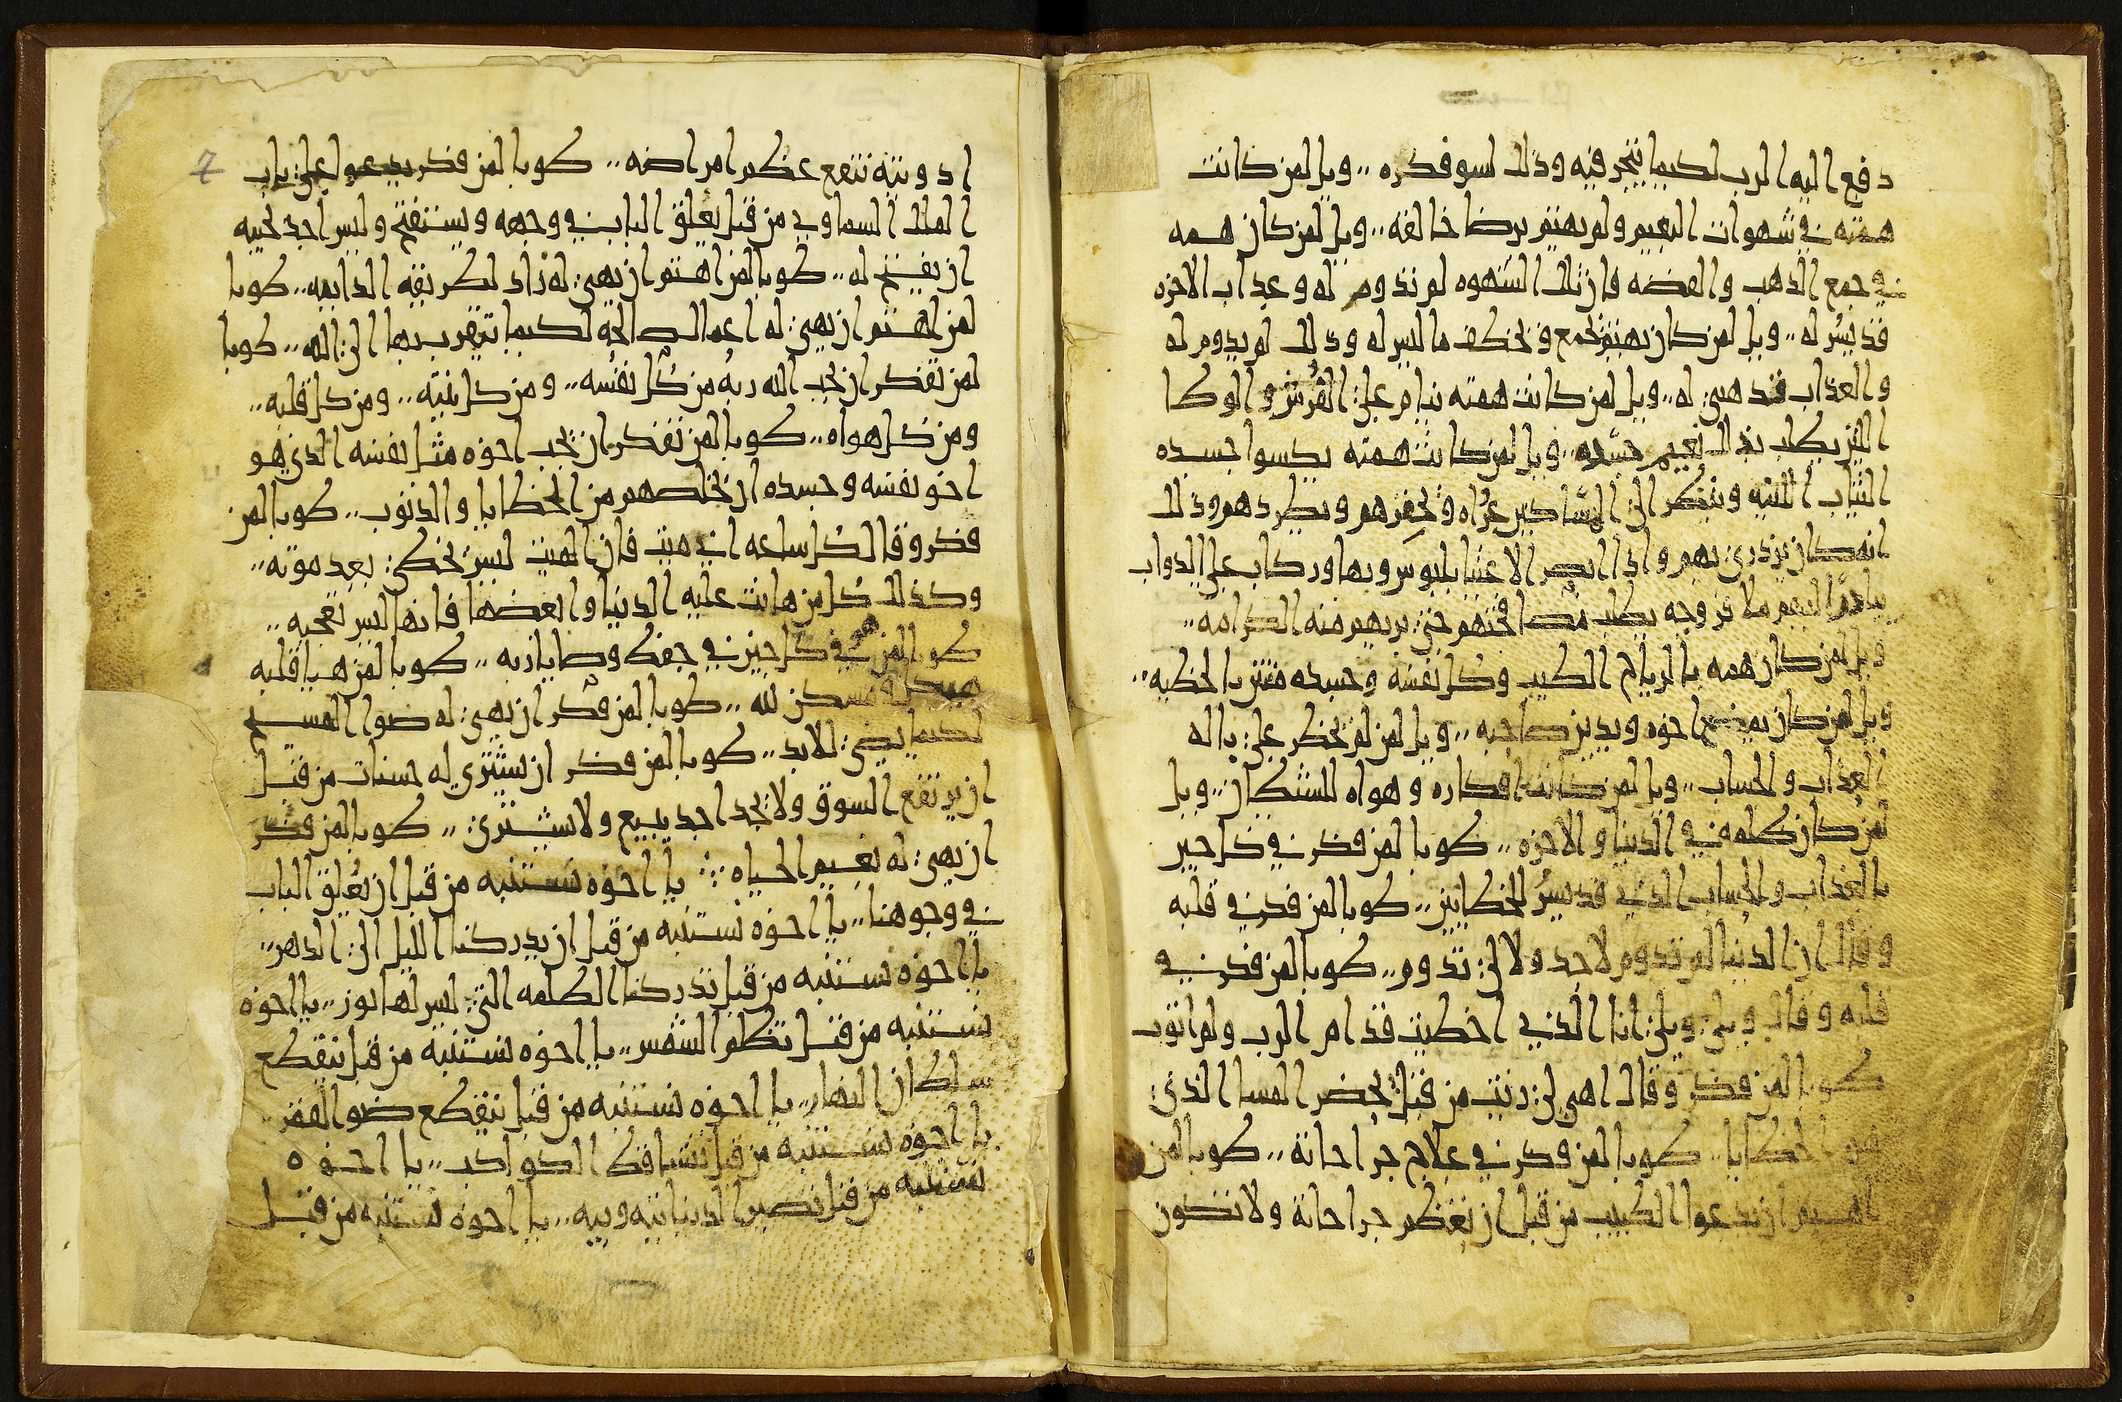 دفع اليه الرب لكيما يتجر فيه وذلك لسو فكره .. ويل لمن كانت
همته في شهوات النعيم ولم يهتم برضا خالقه .. ويل لمن كان همه
في جمع الذهب والفضه فان تلك الشهوه لم تدوم له وعذاب الاخره
قد يسر له .. ويل لمن كان يهتم بجمع وبخطف ما ليس له وذلك لم يدوم له
والعذاب قد هيى له .. ويل لمن كانت همته ينام على الفرش والوطا
اللين يطلب بذلك نعيم جسده .. ويل لمن كانت همته يكسوا جسده
الثياب اللينه وينظر الى المساكين عراه ويحقرهم ويطردهم وذلك
انه كان يزدري بهم واذا ابصر الاغنيا وركاب على الدواب
يطلب منه الكرامه ..
ويل لمن كان همه بالرياح الطيب وكل نفسه وجسده منتن بالخطيه ..
ويل لمن كان يبغض اخوه ويدين صاحبه .. ويل لمن لم يخطر على باله
العذاب والحساب .. ويل لمن كانت افكاره وهواه للشيطان .. ويل
لمن كان طلمه في الدنيا والاخره .. طوبا لمن فكر في كل حين
بالعذاب والحساب الذي قد يسر للخطايين .. طوبا لمن فكر في قلبه
وقال ان الدنيا لم تدوم لاحد ولا لي تدوم .. طوبا لمن فكر في
قلبه وقال ويلي ويلي انا الذي اخطيت قدام الرب ولم اتوب
طوبا لمن فكر وقال الهي لي دنت من قبل يحضر المسا الذي
هو الخطايا .. طوبا لمن فكر في علاج جراحاته .. طوبا لمن
اهتم ان يدعوا الطبيب من قبل ان تعظم جراحاته ولا تكون
ادويته تنفع عظم امراضه .. طوبا لمن فكر يدعوا على باب
الملك السماوي من قبل يغلق الباب في وجهه ويستفتح وليس احد يجيبه
ان يفتح له .. طوبا لمن اهتم ان يهيى له زاد لطريقه الدايمه .. طوبا
لمن اهتم ان يهيى له اعمال صالحه لكيما يتقرب بها الى الله .. طوبا
لمن تفكر ان يحب الله ربه من كل نفسه .. ومن كل نيته .. ومن كل قلبه ..
ومن كل هواه .. طوبا لمن تفكر ان يحب اخوه مثل نفسه الذي هو
اخو نفسه وجسده ان يخلصهم من الخطايا والذنوب .. طوبا لمن
فكر وقال كل ساعه اني ميت فان الميت ليس يخطى بعد موته ..
وكذلك كل من هانت عليه الدنيا وابغضها فانها ليس تعجبه ..
طوبا لمن في كل حين في حفظ وصايا ربه .. طوبا لمن هيا قلبه
هيكل ومسكن لله .. طوبا لمن فكر ان يهيى له ضوا المسيح
لكيما يضى للابد .. طوبا لمن فكر ان يشتري له حسنات من قبل
ان يرتفع السوق ولا يجد احد يبيع ولا يشتري .. طوبا لمن فكر
ان يهيى له نعيم الحياه .. يا اخوه نستنبه من قبل ان يغلق الباب
في وجوهنا .. يا اخوه نستنبه من قبل ان يدركنا الليل الى الدهر ..
يا اخوه نستنبه من قبل تدركنا الظلمه التي ليس لها نور .. يا اخوه
نستنبه من قبل تظلم الشمس .. يا اخوه نستنبه من قبل ينقطع
سلطان النهار .. يا اخوه نستنبه من قبل ينقطع ضو القمر ..
يا اخوه نستنبه من قبل تتساقط الكواكب .. يا اخوه
نستنبه من قبل تصير الدنيا تيه وبيه .. يا اخوه نستنبه من قبل